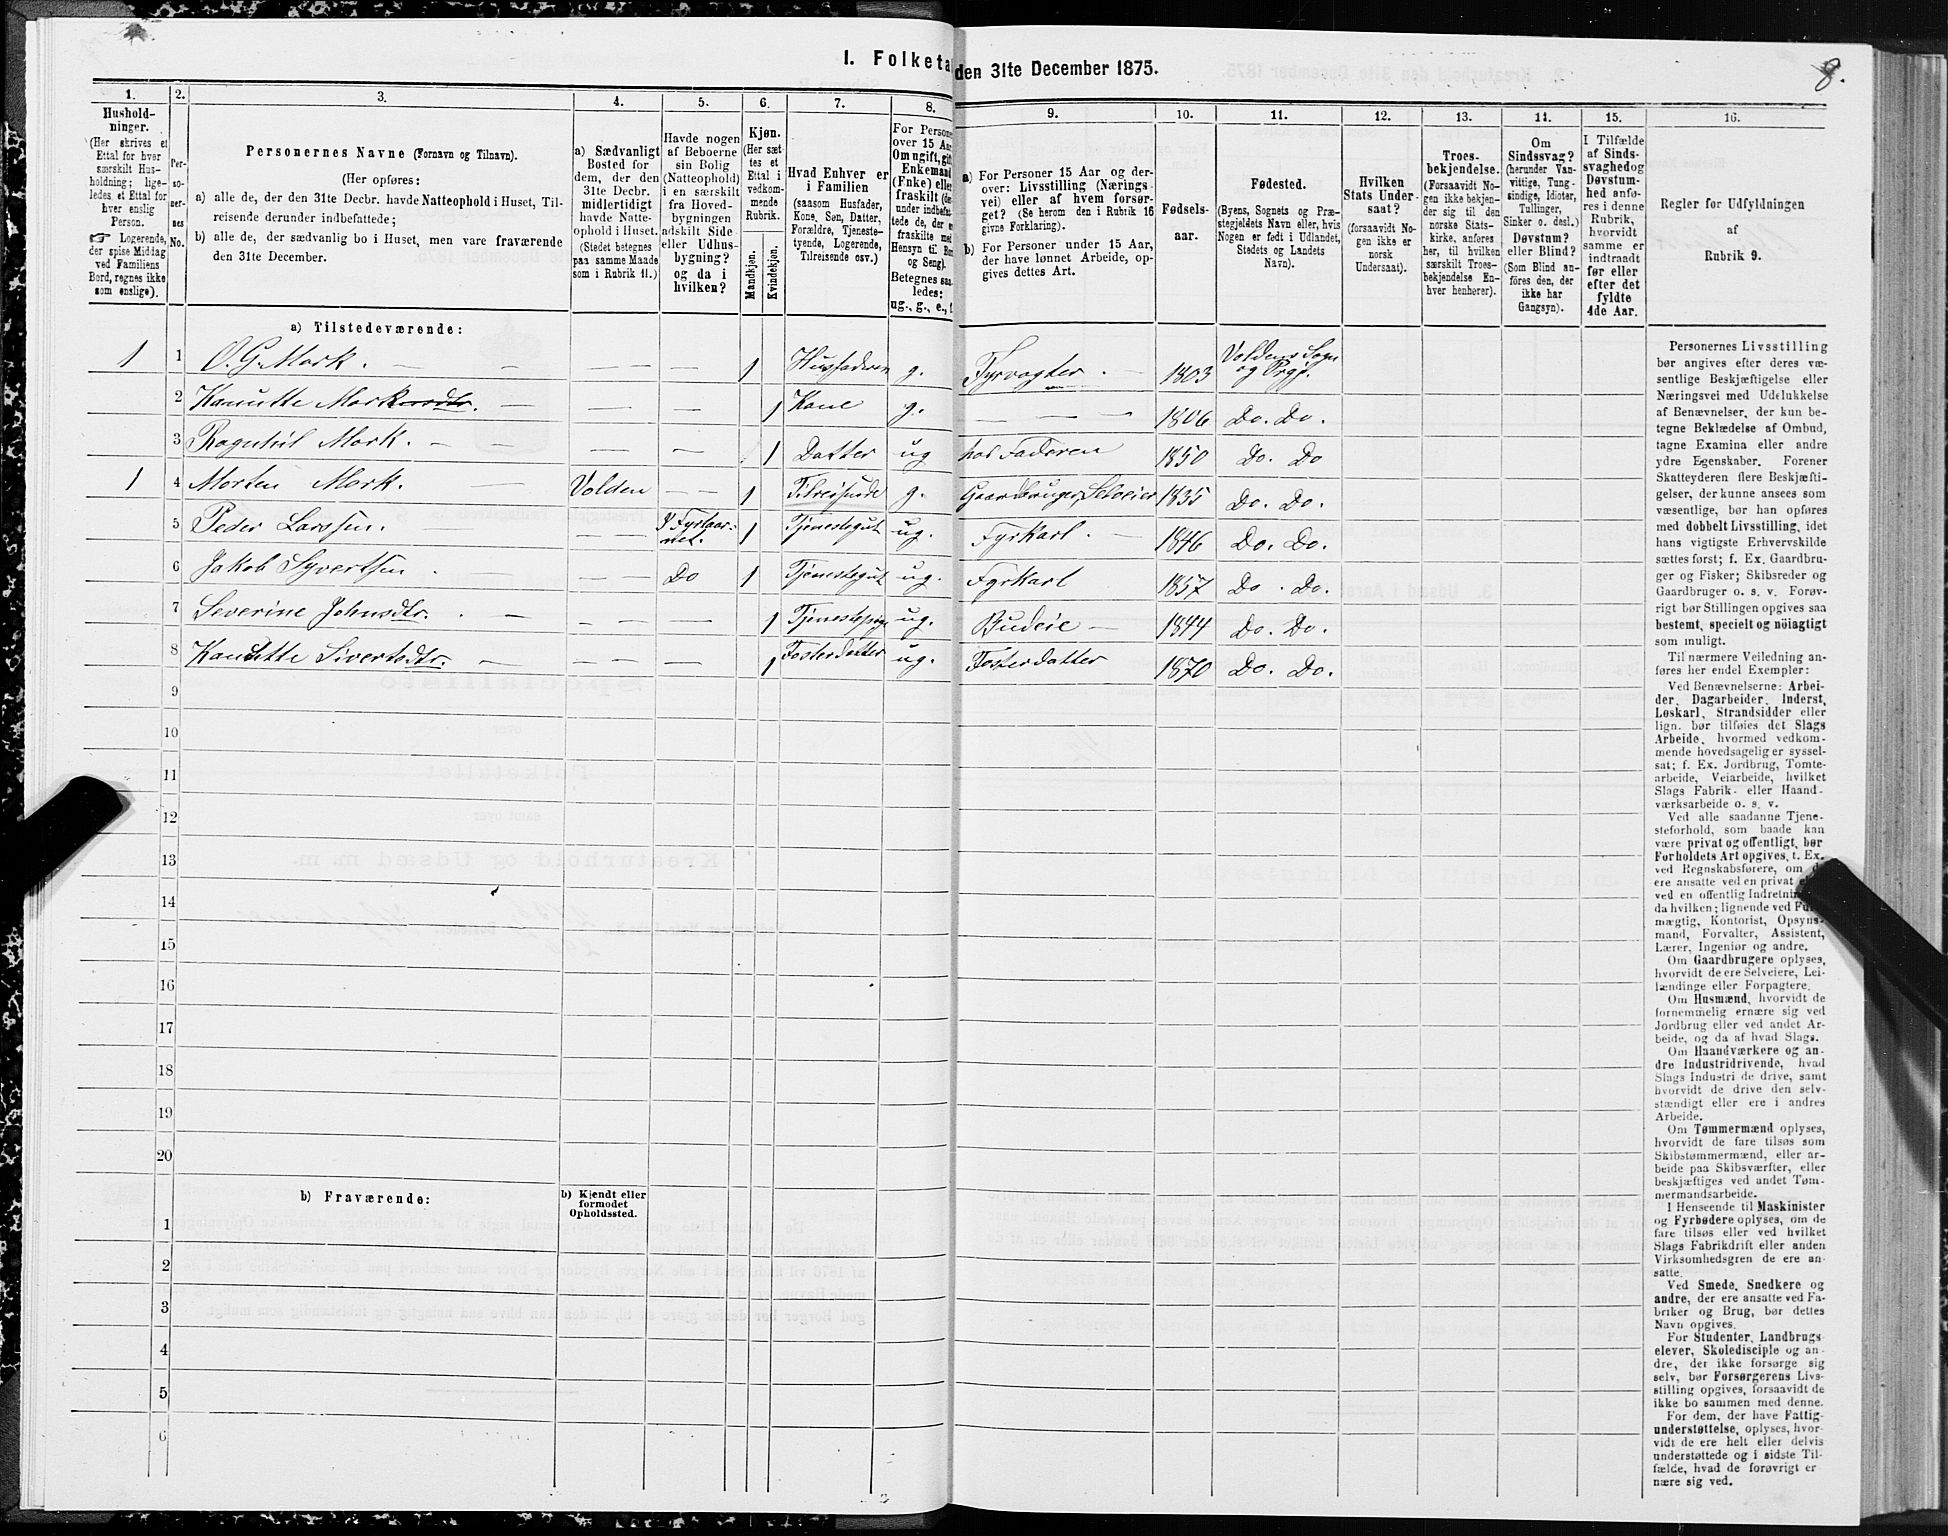 I. Folketal den 31te December 1875.
8.
1.
2.
3.
4.
5.
6.
7.
8.
9.
10.
11.
12.
13.
14.
15.
16.
Hushold-
ninger.
(Her skrives et
Ettal for hver
særskilt Hus-
holdning; lige-
ledes et Ettal for
hver enslig
Person.
☞ Logerende,
der spise Middag
ved Familiens
Bord, regnes ikke
som enslige).
Per-
so-
ner-
nes
No.
Personernes Navne (Fornavn og Tilnavn).
(Her opføres:
a) alle de, der den 31te Decbr. havde Natteophold i Huset, Til-
reisende derunder indbefattede;
b) alle de, der sædvanlig bo i Huset, men vare fraværende
den 31te December.
a) Sædvanligt
Bosted for
dem, der den
31te Decbr.
midlertidigt
havde Natte-
ophold i Huset.
(Stedet betegnes
paa samme Maade
som i Rubrik 11.)
Havde nogen
af Beboerne
sin Bolig
(Natteophold)
i en særskilt
fra Hoved-
bygningen
adskilt Side-
eller Udhus-
bygning?
og da i
hvilken?
Kjøn.
(Her sæt-
tes et
Ettal i
vedkom-
mende
Rubrik.
Mandkjøn.
Kvindekjøn.
Hvad Enhver er
i Familien
(saasom Husfader,
Kone, Søn, Datter,
Forældre, Tjeneste-
tyende, Logerende,
Tilreisende osv.)
For Persone
over 15 Aar
Om ugift, gift
Enkemand
(Enke) eller
fraskilt (der-
under indbefat-
tede de, der er
fraskilte med
Hensyn til Bor
og Seng).
Betegnes saa-
ledes:
ug., g., e., f.
a) For Personer 15 Aar og der-
over: Livsstilling (Nærings-
vei) eller af hvem forsør-
get? (Se herom den i Rubrik 16
givne Forklaring).
b) For Personer under 15 Aar,
der have lønnet Arbeide, op-
gives dettes Art.
Fødsels-
aar.
Fødested.
(Byens, Sognets og Præ-
stegjeldets Navn eller, hvis
Nogen er født i Udlandet,
Stedets og Landets
Navn).
Hvilken
Stats Under-
saat?
(forsaavidt No-
gen ikke er
norsk
Undersaat).
Troes-
bekjendelse.
(Forsaavidt No-
gen ikke bekjen-
der sig til den
norske Stats-
kirke, anføres
her, til hvilken
særskilt Troes-
bekjendelse En-
hver henhører).
Om
Sindssvag?
(herunder Van-
vittige, Tung-
sindige, Idioter,
Tullinger,
Sinker o. desl.)
Døvstum?
eller Blind?
(Som Blind an-
føres den, der
ikke har
Gangsyn).
I Tilfælde
af Sinds-
svaghed og
Døvstum-
hed anfø-
res i denne
Rubrik,
hvorvidt
samme er
indtraadt
før eller
efter det
fyldte
4de Aar.
Regler for Udfyldningen
af
Rubrik 9.
a) Tilstedeværende:
1 1 O. G. Mork. — — — 1 Husfaderen g. Fyrvogter. — 1803 Voldens Sogn og Prgj.
2 Hanutte Morksdtr. — — — 1 Kone g. — — 1806 Do. Do.
3 Ragnhil Mork. — — — 1 Datter ug hos Faderen 1850 Do. Do
1 4 Morten Mork. — Volden — — 1 Tilreisende g. Gaardbruger, Selveier 1835 Do. Do.
5 Peder Larssen. — — — I Fyrtaarnet. 1 Tjenestegut ug. Fyrkarl. — 1846 Do. Do.
6 Jakob Syvertsen — — Do 1 Tjenestegut ug. Fyrkarl 1857 Do. Do.
7 Severine Johnsdtr. — — — 1 Tjenestepige ug. Budeie — 1844 Do. Do.
8 Hanutte Sivertsdtr. — — — 1 Fosterdatter ug. Fosterdatter 1870 Do. Do.
9
10
11
12
13
14
15
16
17
18
19
20
b) Fraværende:
b) Kjendt eller
formodet
Opholdssted.
1
2
3
4
5
6
Personernes Livsstilling
bør angives efter deres væ-
sentlige Beskjæftigelse eller
Næringsvei med Udelukkelse
af Benævnelser, der kun be-
tegne Beklædelse af Ombud,
tagne Examina eller andre
ydre Egenskaber. Forener
Skatteyderen flere Beskjæfti-
gelser, der kunne ansees som
væsentlige, bør han opføres
med dobbelt Livsstilling, idet
hans vigtigste Erhvervskilde
sættes først; f. Ex. Gaardbru-
ger og Fisker; Skibsreder og
Gaardbruger o. s. v. Forøv-
rigt bør Stillingen opgives saa
bestemt, specielt og nöiagtigt
som muligt.
Til nærmere Veiledning an-
føres her endel Exempler:
Ved Benævnelserne: Arbei-
der, Dagarbeider, Inderst,
Løskarl, Strandsidder eller
lign. bør tilføies det Slags
Arbeide, hvormed vedkom-
mende hovedsagelig er syssel-
sat; f. Ex. Jordbrug, Tomte-
arbeide, Veiarbeide, hvilket
Slags Fabrik- eller Haand-
værksarbeide o. s. v.
Ved alle saadanne Tjene-
steforhold, som baade kan
være privat og offentligt, bør
Forholdets Art opgives, t. Ex.
ved Regnskabsførere, om de
ere ansatte ved en privat eller
ved en offentlig Indretning og
da hvilken; lignende ved Fuld-
mægtig, Kontorist, Opsyns-
mand, Forvalter, Assistent,
Lærer, Ingeniør og andre.
Om Gaardbrugere oplyses,
hvorvidt de ere Selveiere, Lei-
lændinge eller Forpagtere.
Om Husmænd, hvorvidt de
fornemmelig ernære sig ved
Jordbrug eller ved andet Ar-
beide, og da af hvad Slags.
Om Haandværkere og an-
dre Industridrivende, hvad
Slags Industri de drive, samt
hvorvidt de drive den selv-
stændigt eller ere i andres
Arbeide.
Om Tømmermænd oplyses,
hvorvidt de fare tilsøs som
Skibstømmermænd, eller ar-
beide paa Skibsværfter, eller
beskjæftiges ved andet Tøm-
mermandsarbeide.
I Henseende til Maskinister
og Fyrbødere oplyses, om de
fare tilsøs eller ved hvilket
Slags Fabrikdrift eller anden
Virksomhedsgren de ere an-
satte.
Ved Smede, Snedkere og
andre, der ere ansatte ved Fa-
briker og Brug, bør dettes
Navn opgives.
For Studenter, Landbrugs-
elever, Skoledisciple og an-
dre, der ikke forsørge sig
selv, bør Forsørgerens Livs-
stilling opgives, forsaavidt de
ikke bo sammen med denne.
For dem, der have Fattig-
understøttelse, oplyses, hvor-
vidt de ere helt eller delvis
understøttede og i sidste Til-
fælde, hvad de forøvrigt er
nære sig ved.